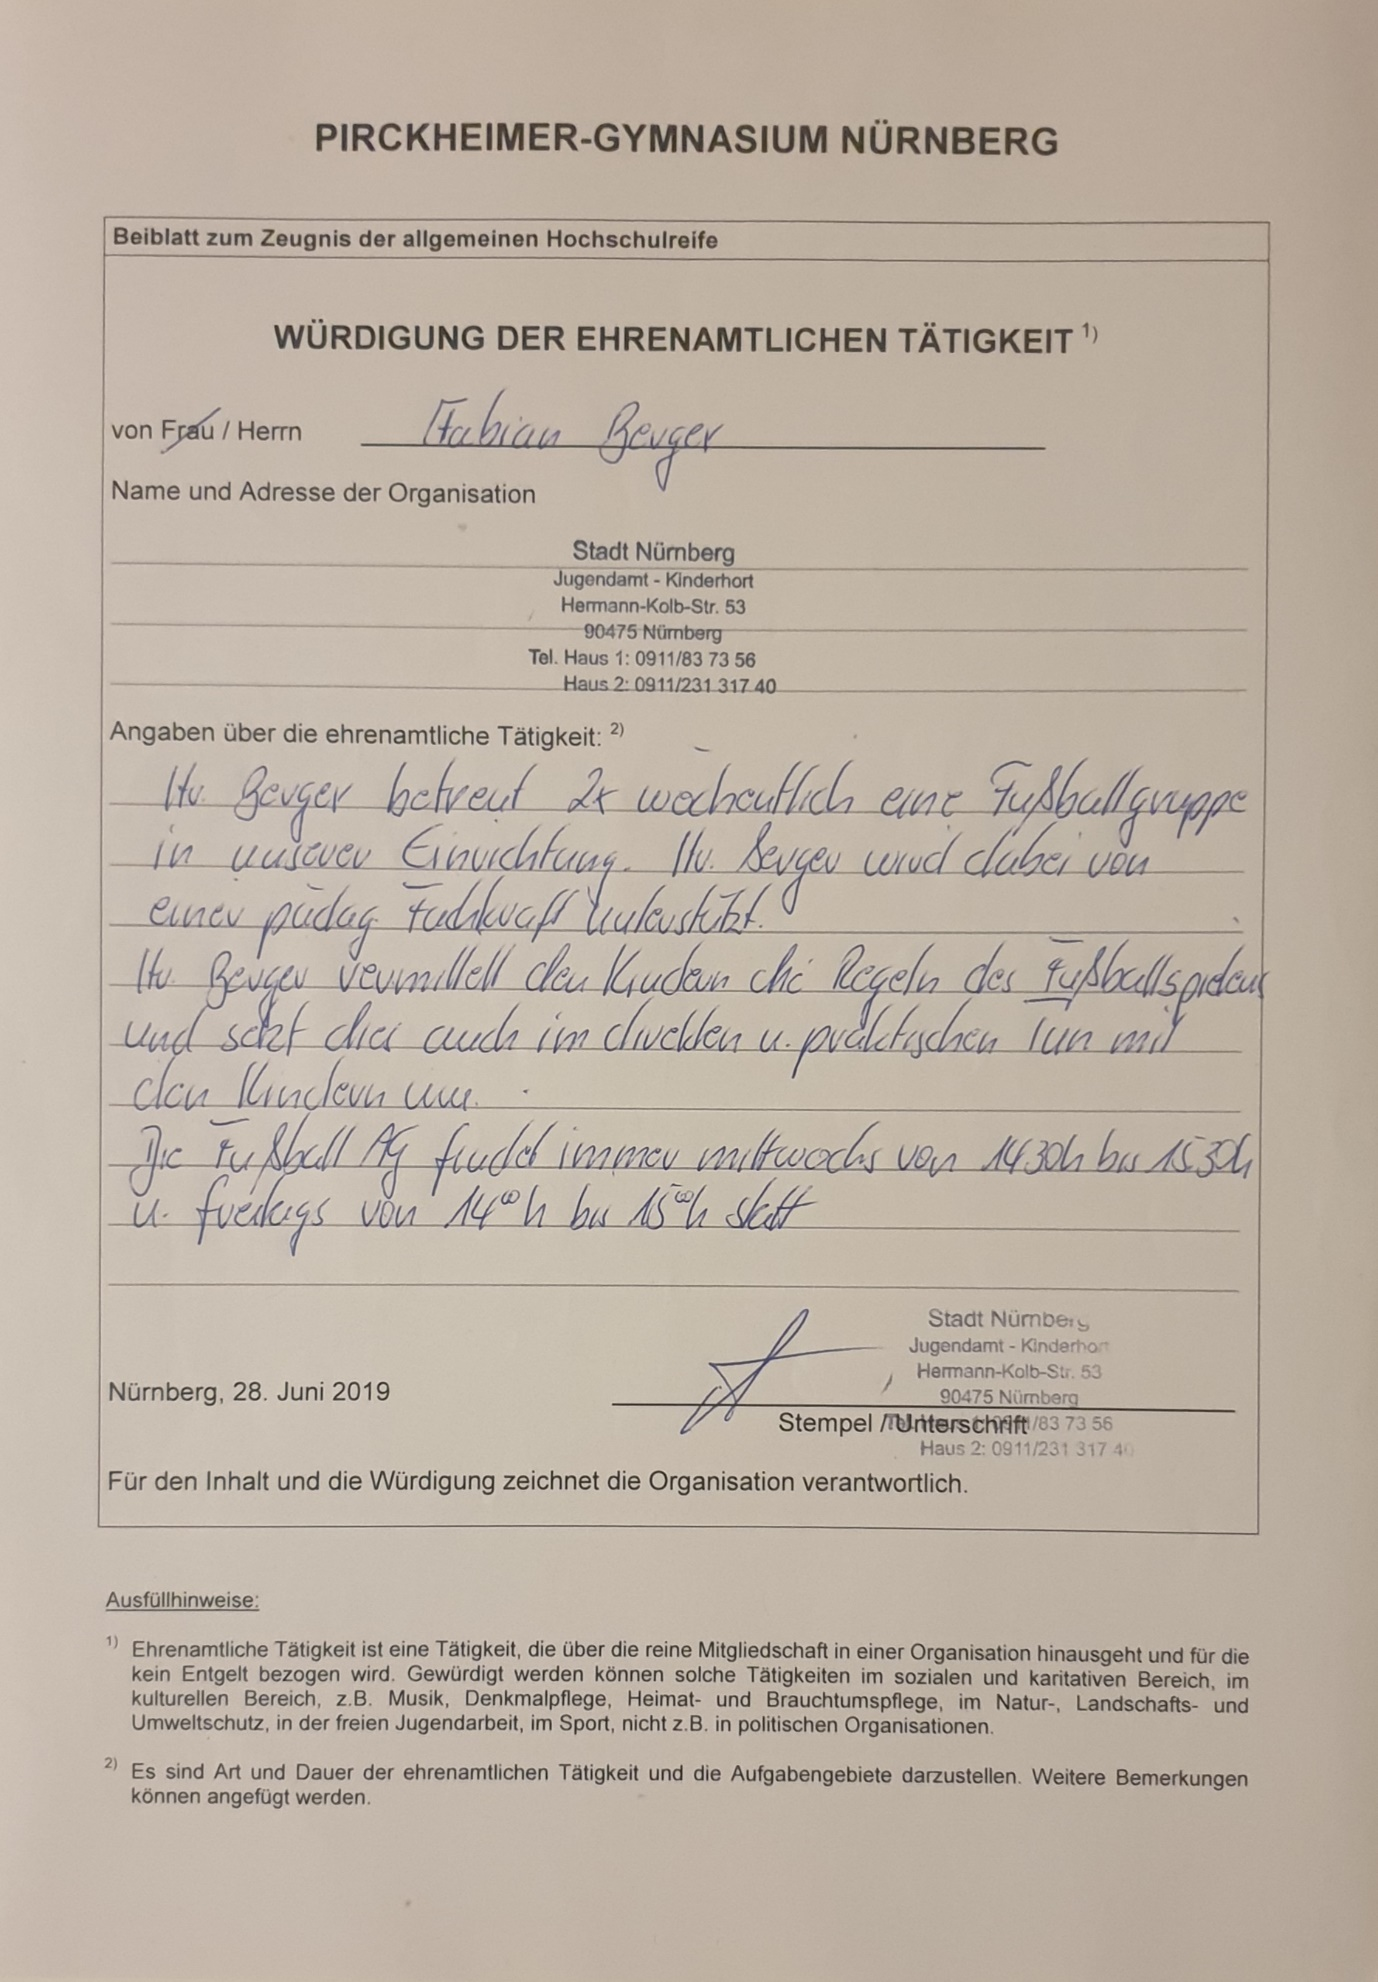 PIRCKHEIMER-GYMNASIUM NÜRNBERG
Beiblatt zum Zeugnis der allgemeinen Hochschulreife
WÜRDIGUNG DER EHRENAMTLICHEN TÄTIGKEIT 1)
von Frau / Herrn Fabian Berger
Name und Adresse der Organisation
Stadt Nürnberg
Jugendamt - Kinderhort
Hermann-Kolb-Str. 53
90475 Nürnberg
Tel. Haus 1: 0911/83 73 56
Haus 2: 0911/231 317 40
Angaben über die ehrenamtliche Tätigkeit: 2)
Hr. Berger betreut 2x wöchentlich eine Fußballgruppe
in unserer Einrichtung. Hr. Berger wird dabei von
einer pädag. Fachkraft unterstützt.
Hr. Berger vermittelt den Kindern die Regeln des Fußballspielens
und setzt dies auch im direkten u. praktischen Tun mit
den Kindern um.
Die Fußball AG findet immer mittwochs von 1430h bis 1530h
u. freitags von 14°°h bis 15°°h statt
Nürnberg, 28. Juni 2019
Stadt Nürnberg
Jugendamt - Kinderhort
Hermann-Kolb-Str. 53
90475 Nürnberg
Stempel / Unterschrift
Tel. Haus 1: 0911/83 73 56
Haus 2: 0911/231 317 40
Für den Inhalt und die Würdigung zeichnet die Organisation verantwortlich.
Ausfüllhinweise:
1) Ehrenamtliche Tätigkeit ist eine Tätigkeit, die über die reine Mitgliedschaft in einer Organisation hinausgeht und für die
kein Entgelt bezogen wird. Gewürdigt werden können solche Tätigkeiten im sozialen und karitativen Bereich, im
kulturellen Bereich, z.B. Musik, Denkmalpflege, Heimat- und Brauchtumspflege, im Natur-, Landschafts- und
Umweltschutz, in der freien Jugendarbeit, im Sport, nicht z.B. in politischen Organisationen.
2) Es sind Art und Dauer der ehrenamtlichen Tätigkeit und die Aufgabengebiete darzustellen. Weitere Bemerkungen
können angefügt werden.